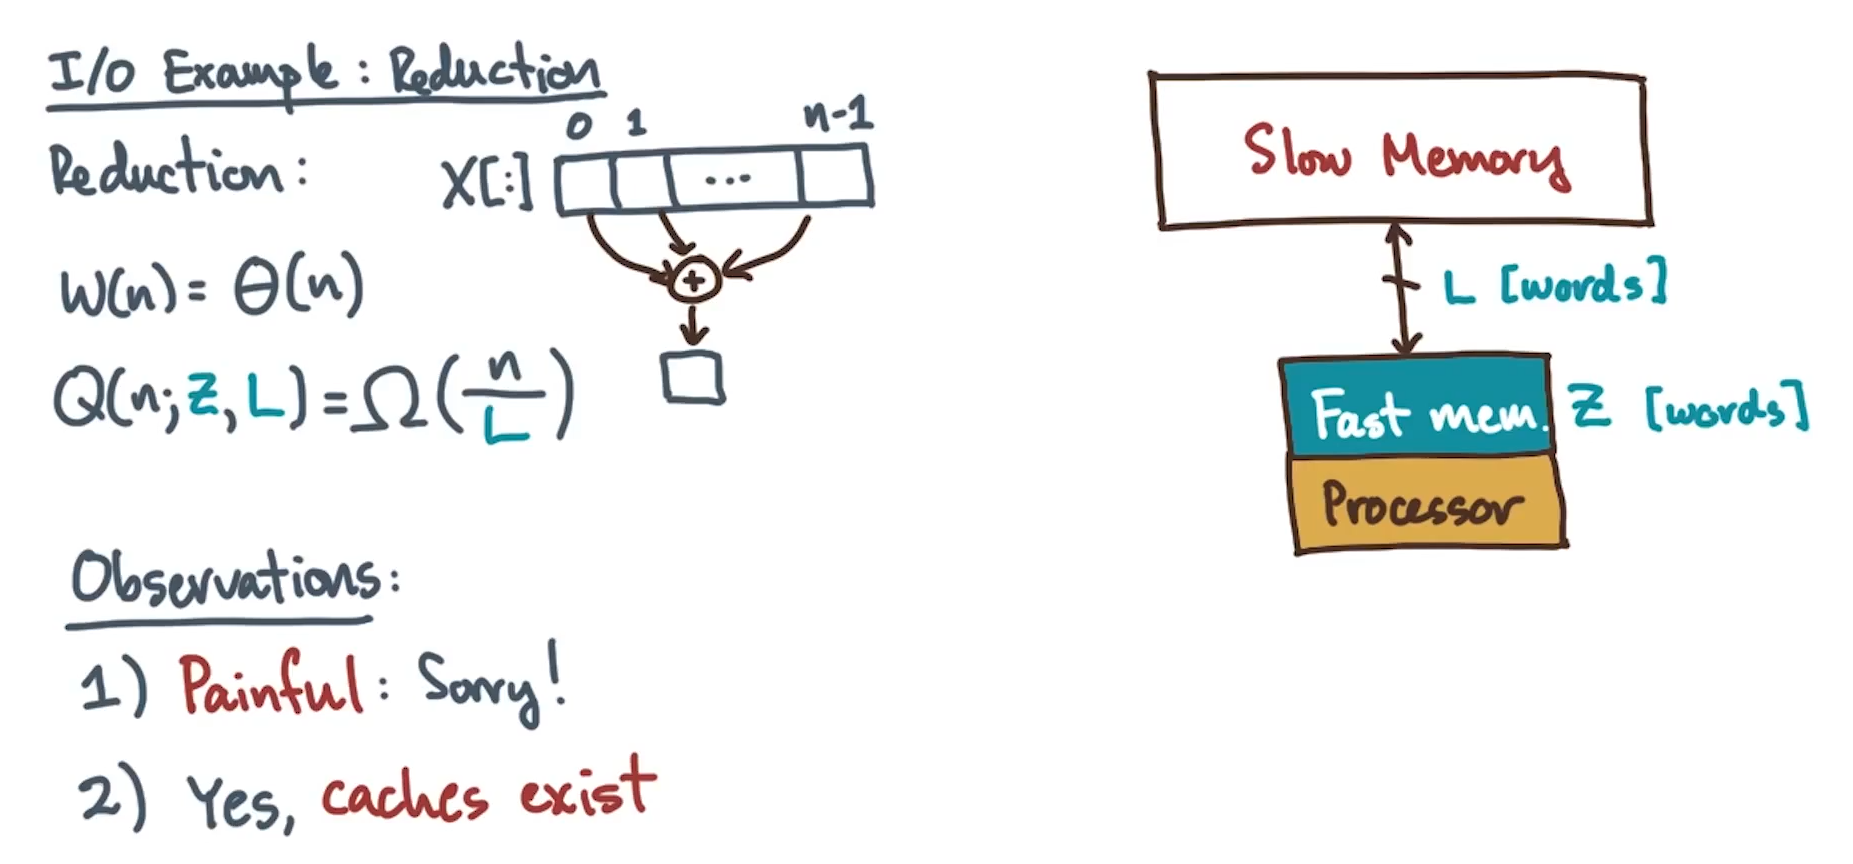 I/O Example: Reduction
0 1 n-1
Reduction: X[:] ...
+
W(n) = Θ(n)
Q(n; Z, L) = Ω(n/L)
Observations:
1) Painful: Sorry!
2) Yes, caches exist
Slow Memory
L [words]
Fast mem. Z [words]
Processor